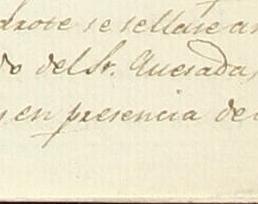 se sellase
do del Sr. Quesada,
y en presencia de